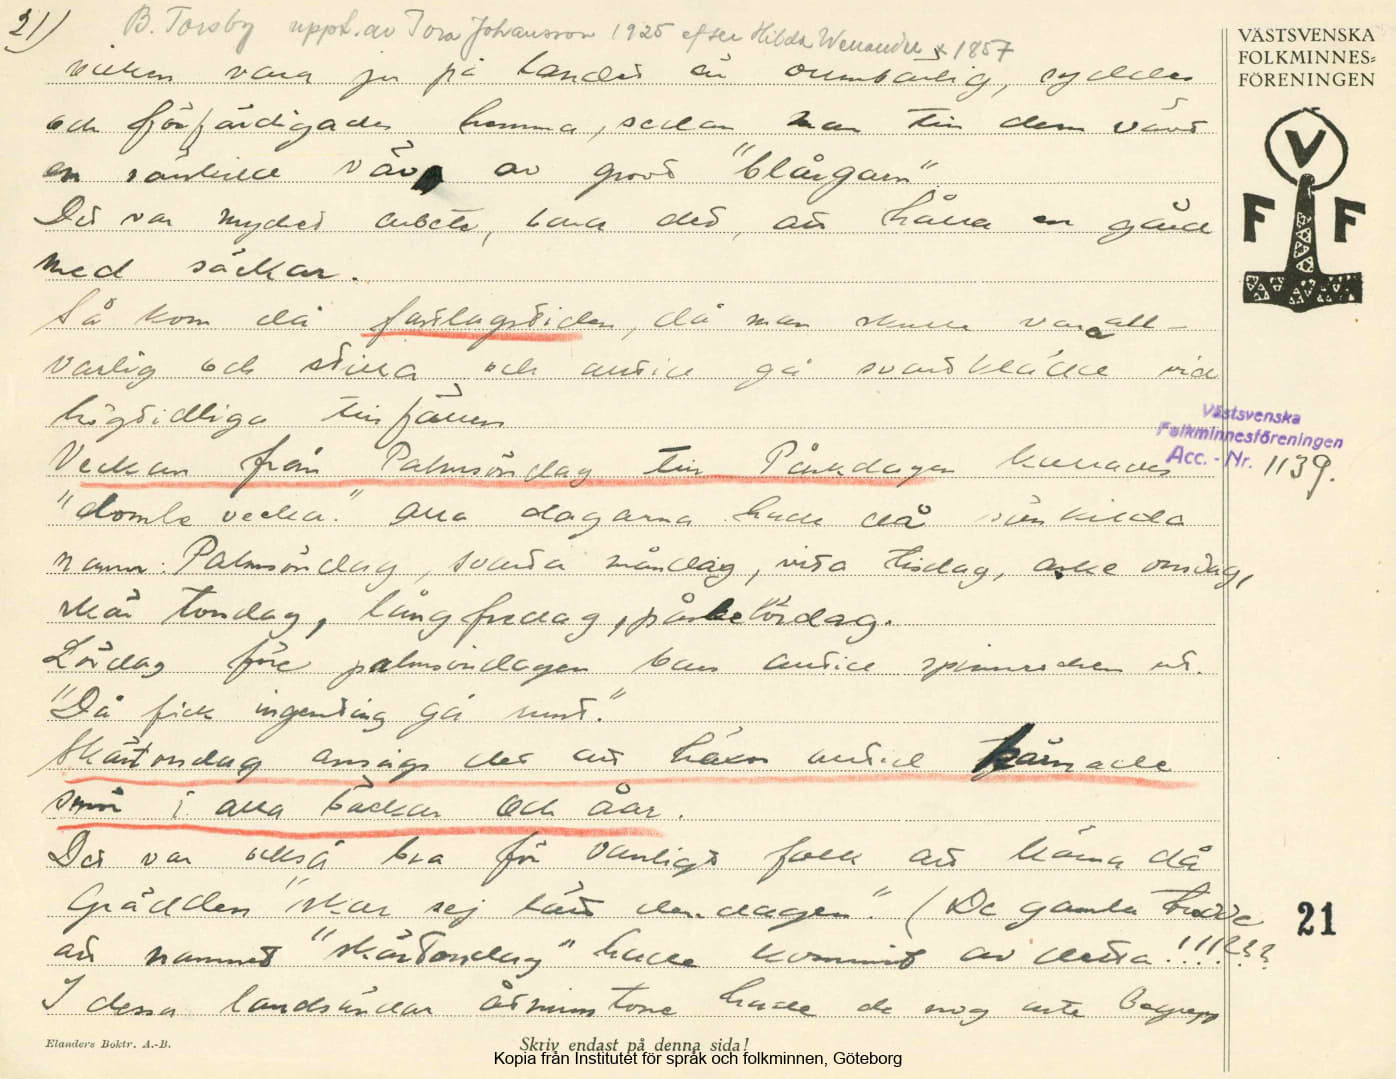 21)
B. Torsby uppt. av Tora Johansson 1925 efter Hilda Wenander f. 1857
VÄSTSVENSKA
FOLKMINNES=
FÖRENINGEN
V
F F
säcken vara ju på landet så oumbärlig, syddes
och förfärdigades hemma, sedan man till dem vävt
en särskild väv av grovt "blångarn".
Det var mycket arbete, bara det, att hålla en gård
med säckar.
Så kom då fastlagstiden, då man skulle vara all-
varlig och stilla och alltid gå svartklädd vid
högtidliga tillfällen
Veckan från Palmsöndag till Påskdagen kallades
"dombe vecka." Alla dagarna hade då särskilda
namn: Palmsöndag, svarta måndag, vita tisdag, aske onsdag,
skär torsdag, långfredag, påskelördag.
Västsvenska
Folkminnesföreningen
Acc. - Nr. 1139.
Lördag före palmsöndagen bars alltid spinnrocken ut.
"Då fick ingenting gå runt."
Skärtorsdag ansågs det att häxor alltid kärnade
smör i alla bäckar och åar.
Det var också bra för vanligt folk att kärna då
Grädden "skar sej lätt den dagen". (De gamla trodde
att namnet "skärtorsdag" hade kommit av detta!!!!???
I dessa landsändar åtminstone hade de nog inte begrepp
21
Elanders Boktr. A.-B.
Skriv endast på denna sida!
Kopia från Institutet för språk och folkminnen, Göteborg